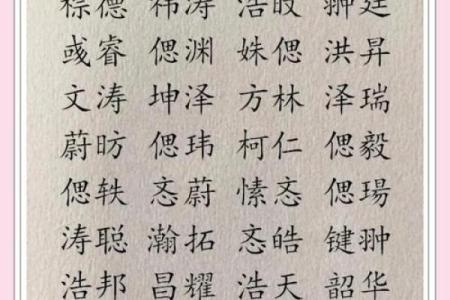 德 祎涛 浩皎 翀廷
彧睿 偲渊 姝偲 洪昇
文涛 坤泽 方林 泽瑞
蔚昉 偲玮 柯仁 偲毅
偲轶 忞蔚 愫忞 偲瑒
涛聪 瀚拓 忞皓 键翀
浩邦 昌耀 浩天 韶华